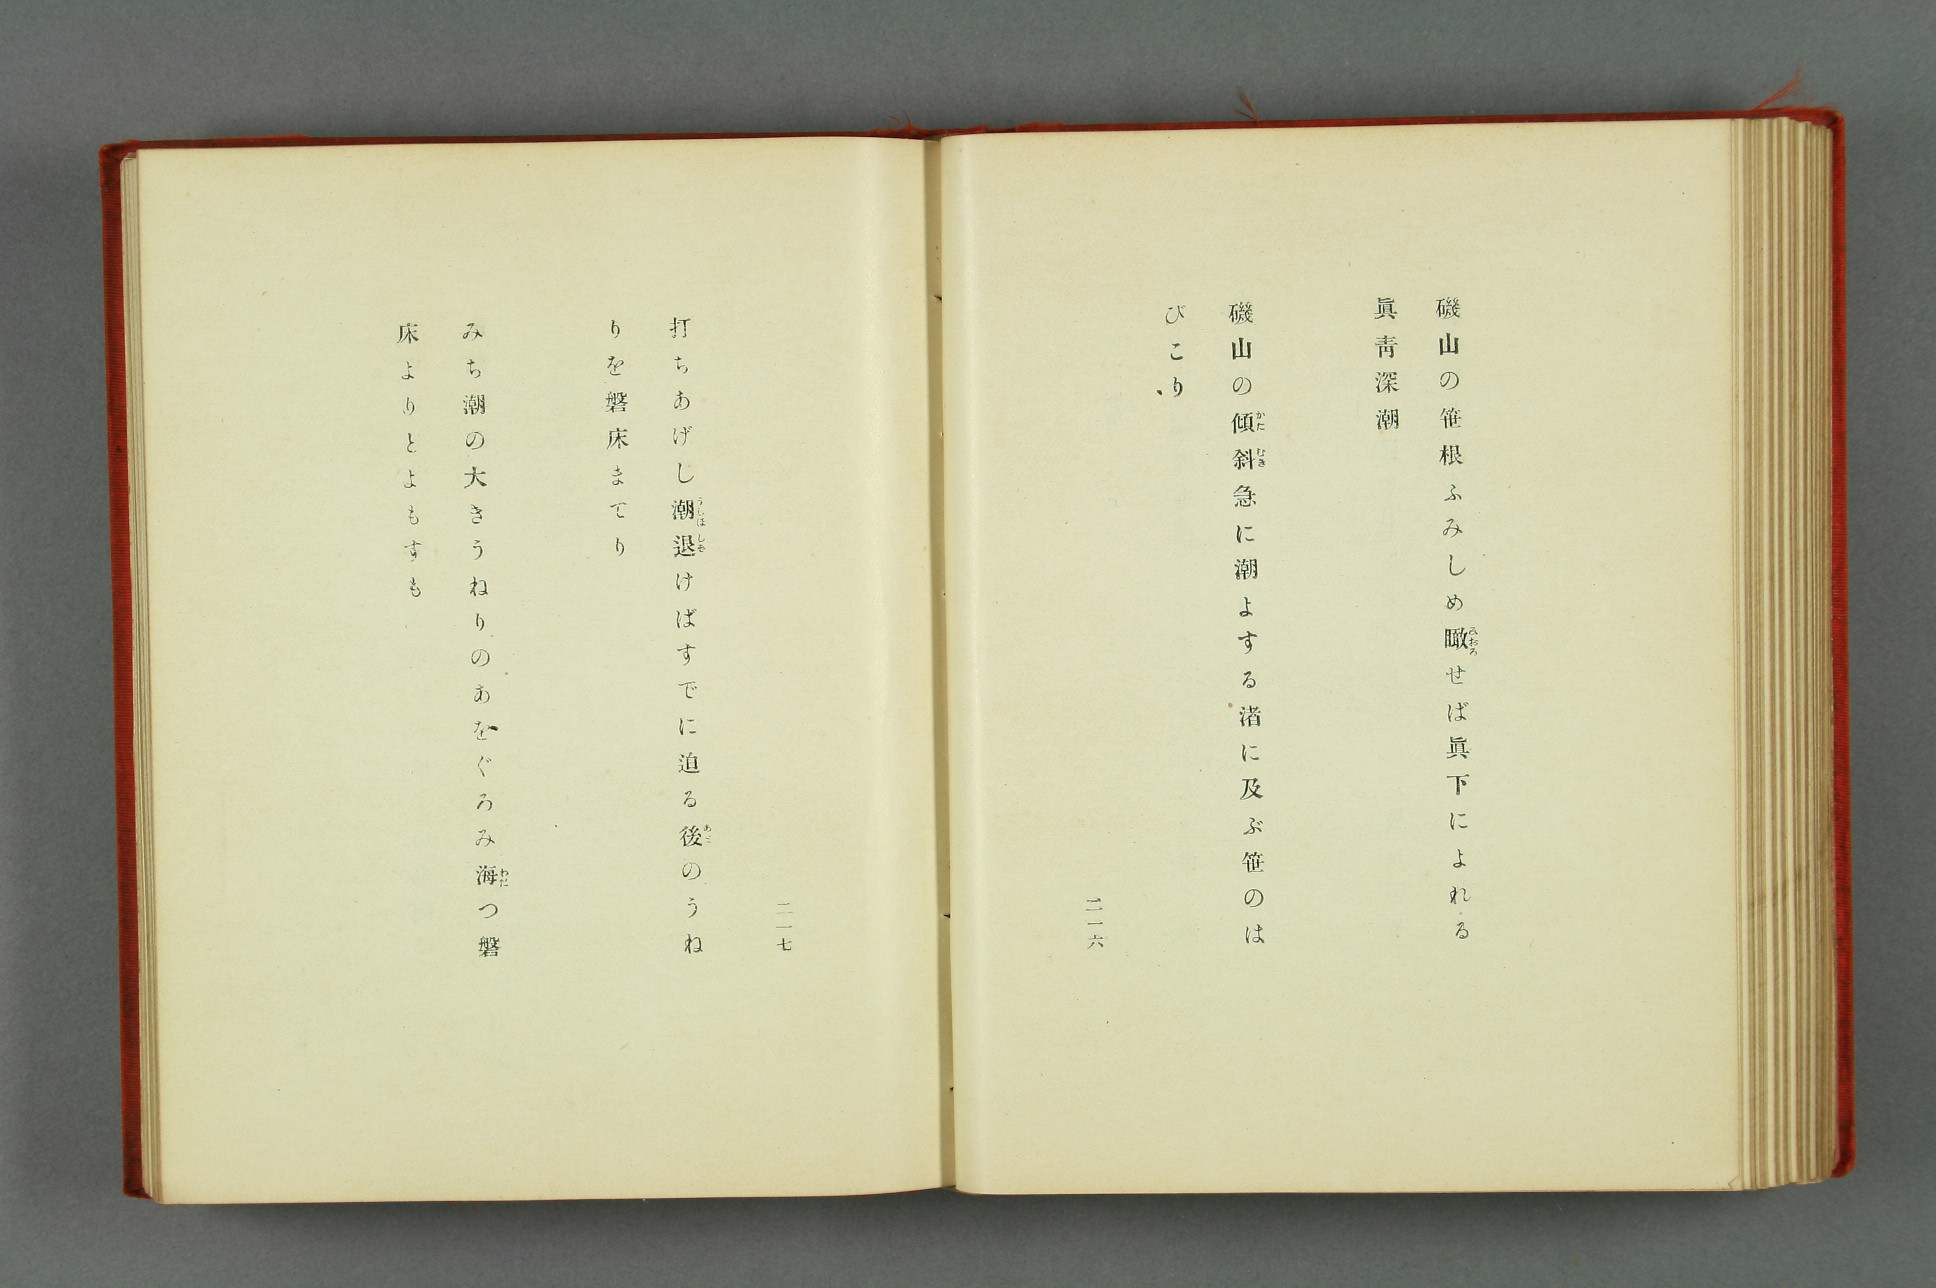 磯山の笹根ふみしめ瞰せば眞下によれる
眞靑深潮
磯山の傾斜急に潮よする渚に及ぶ笹のは
びこり
二一六
二一七
打ちあげし潮退けばすでに迫る後のうね
りを磐床までり
みち潮の大きうねりのあをぐろみ海つ磐
床よりとよもすも